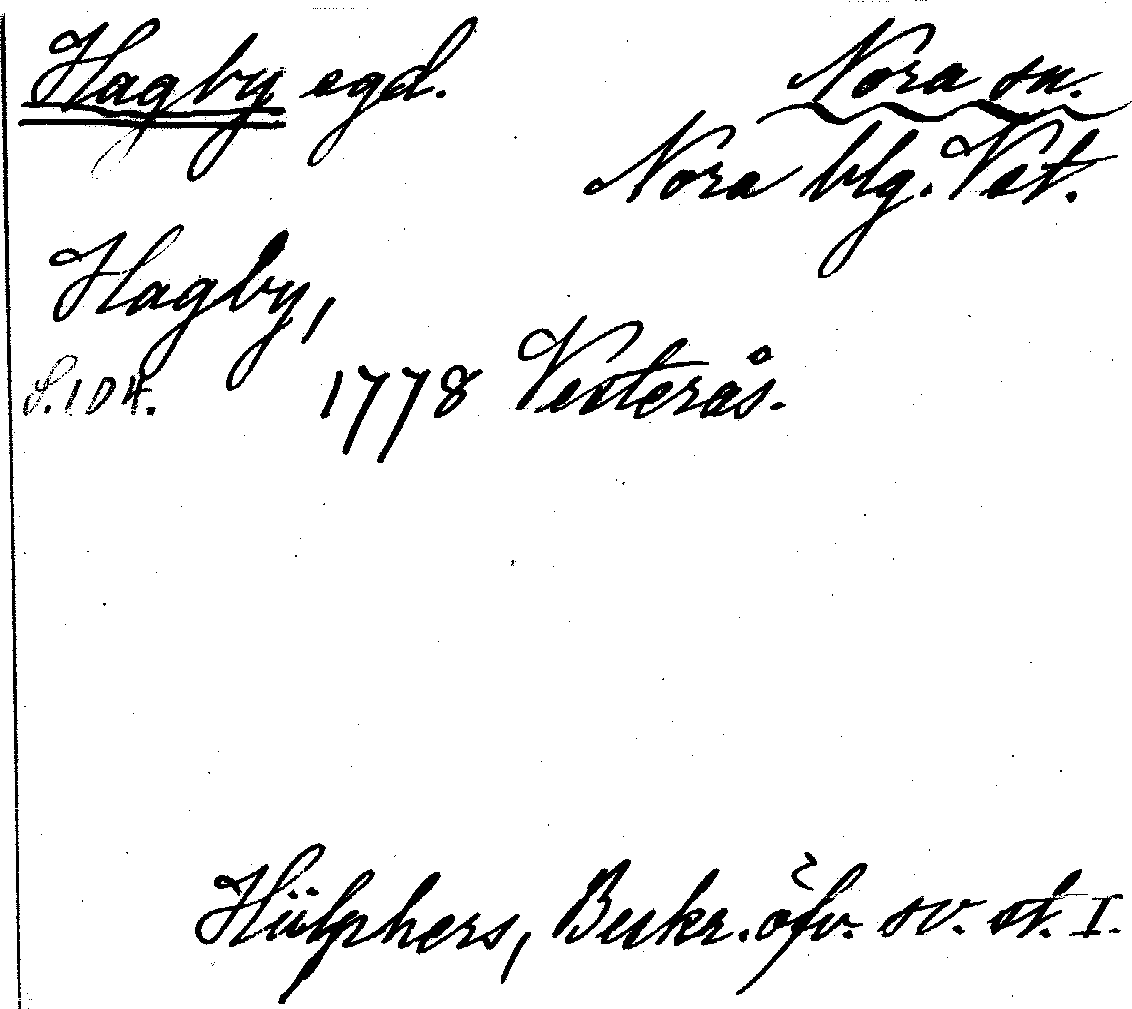 Hagby egd. Nora sn.
Nora blg. Vst.
Hagby,
S. 104. 1778 Vesterås.
Hülphers, Beskr. öfv. sv. st. I.